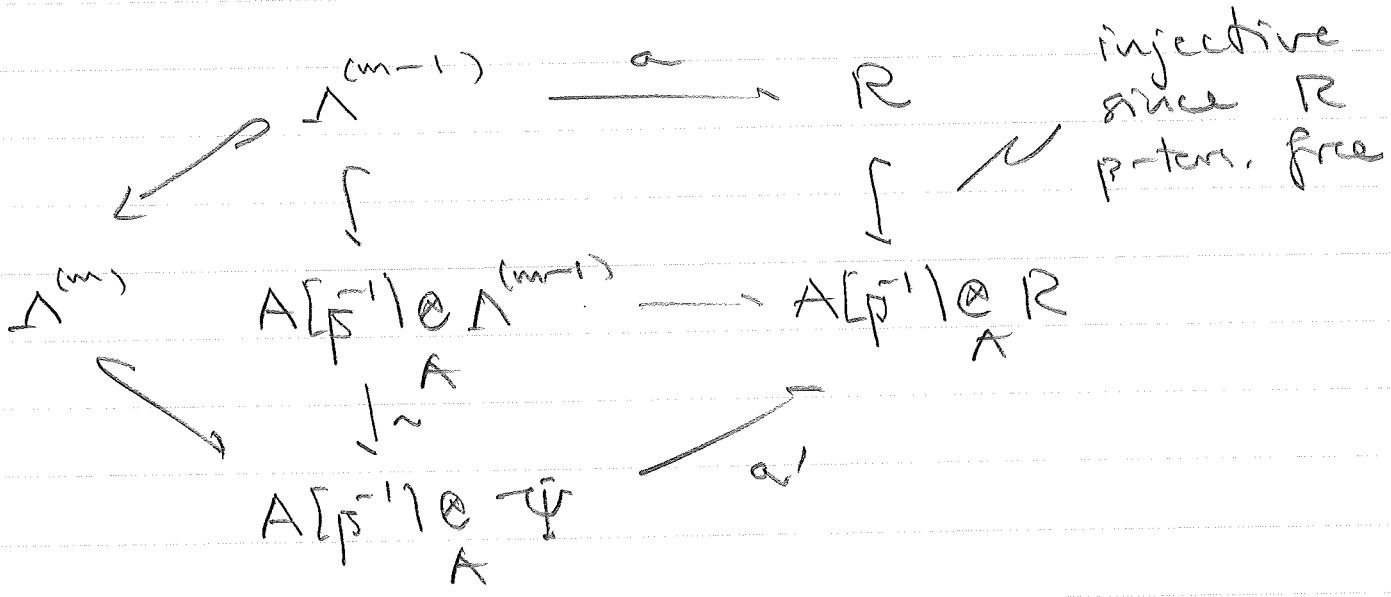 Λ^{(m-1)} —a→ R injective
since R
p-tors. free
Λ^{(m)} A[p^{-1}] ⊗_A Λ^{(m-1)} → A[p^{-1}] ⊗_A R
~
a'
A[p^{-1}] ⊗_A Ψ